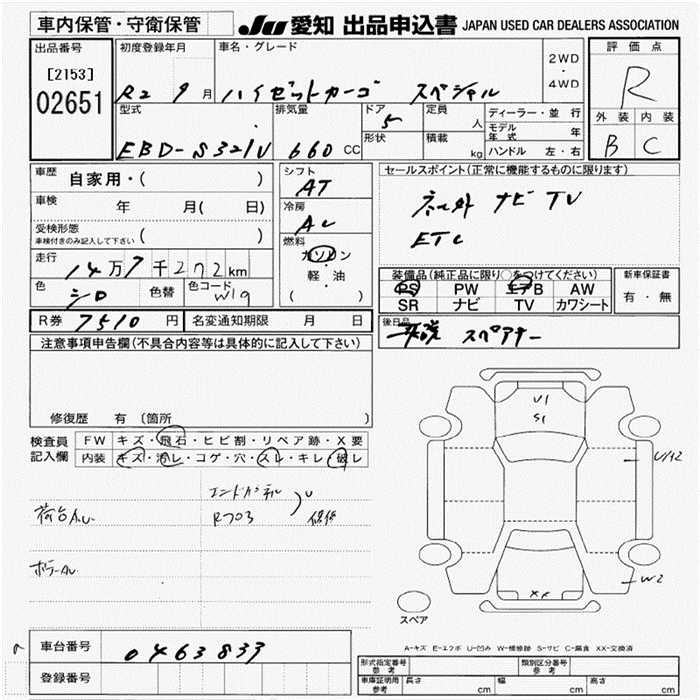 車内保管・守衛保管
JU 愛知 出品申込書 JAPAN USED CAR DEALERS ASSOCIATION
出品番号 [2153] 02651
初度登録年月 R2 9月
車名・グレード ハイゼットカーゴ スペシャル
2WD・4WD
評価点 R
外装 B 内装 C
型式 EBD-S321V
排気量 660 CC
ドア 5
形状
定員 人
積載 kg
ディーラー・並行
モデル年式 年
ハンドル 左・右
車歴 自家用・( )
車検 年 月( 日)
受検形態 車検付きのみ記入して下さい ( )
走行 14万7千272km
色 シロ 色替 色コード W19
シフト AT
冷房 AC
燃料 ガソリン 軽・油 ( )
セールスポイント(正常に機能するものに限ります)
ナビ TV
ETC
装備品(純正品に限り○をつけてください)
PS PW エアB AW
SR ナビ TV カワシート
新車保証書 有・無
R券 7510円 名変通知期限 月 日
後日品 スペアキー
注意事項申告欄(不具合内容等は具体的に記入して下さい)
修復歴 有 〔箇所 〕
検査員記入欄
FW キズ・飛石・ヒビ割・リペア跡・X要
内装 キズ・汚レ・コゲ・穴・スレ・キレ・破レ
荷台A.U
エンドパネル
Rフロア
U
ボデーAU
U1
S1
U/12
W2
XF
スペア
A-キズ E-エクボ U-凹み W-補修跡 S-サビ C-腐食 XX-交換済
車台番号 0463833
登録番号
形式指定番号 参考
類別区分番号 参考
車庫証明用 参考 長さ cm 幅 cm 高さ cm